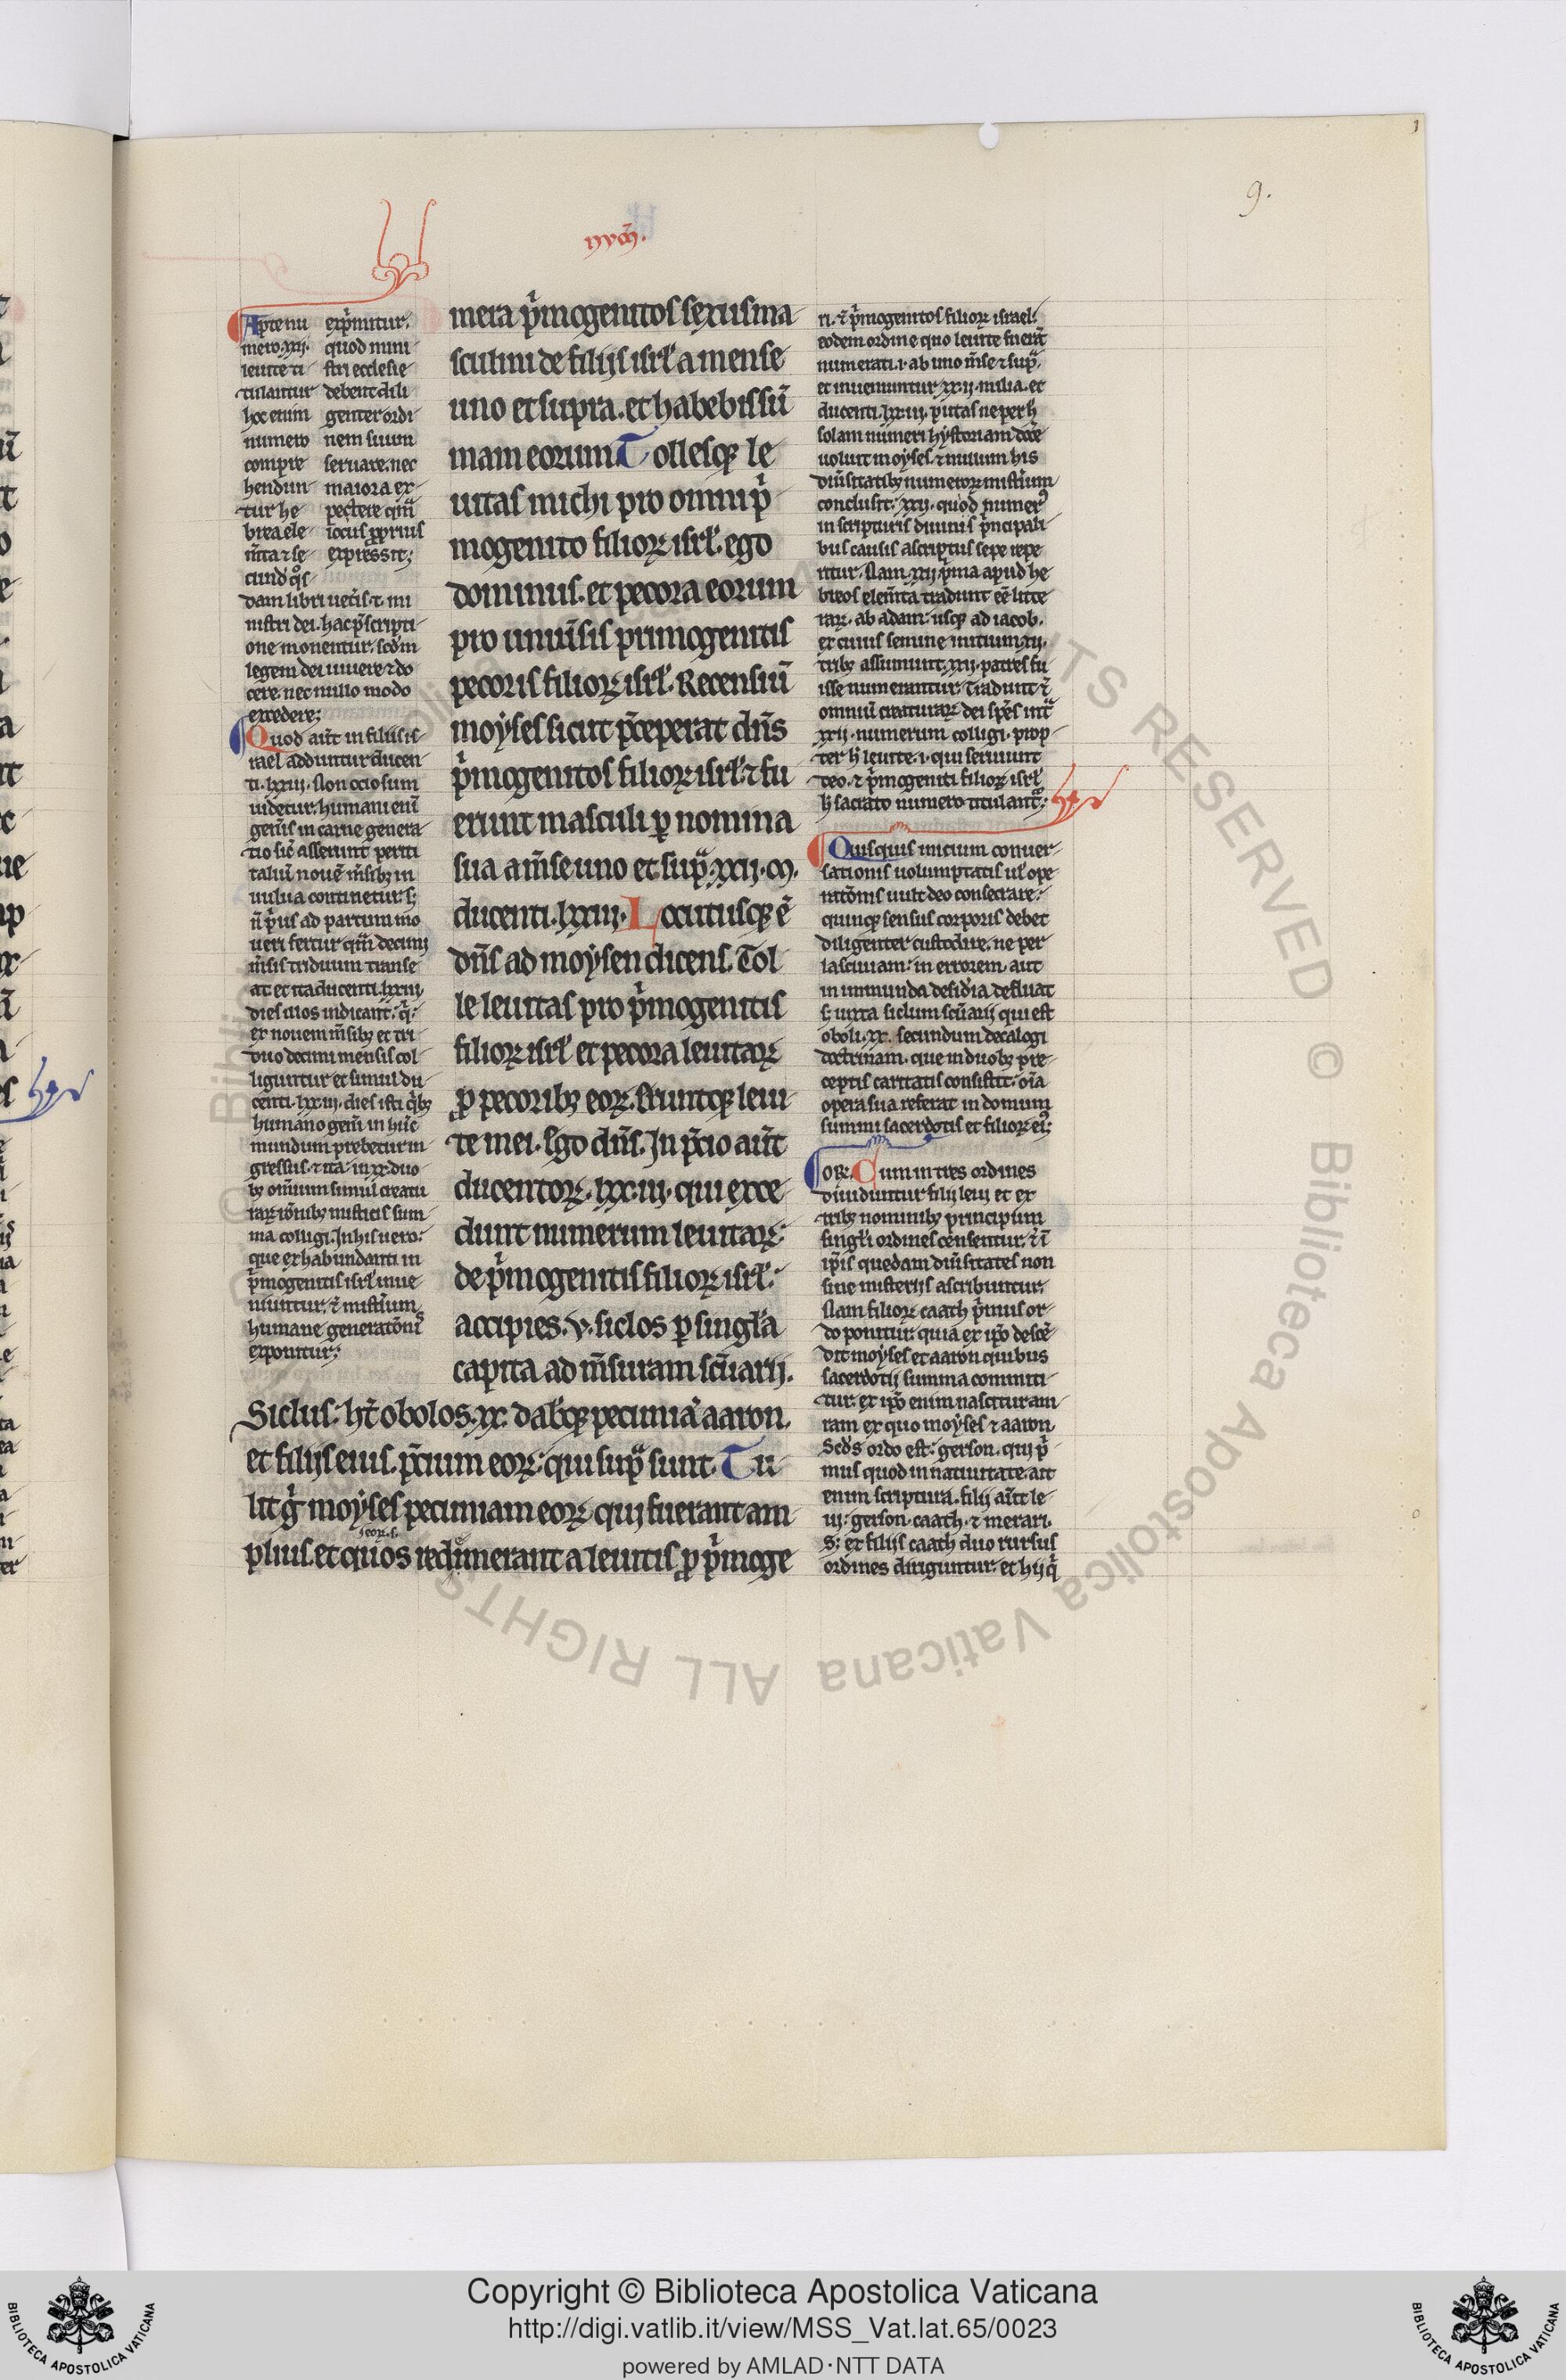 9.
Apte nu
mero .xxii.
leuite ti
tulantur
hoc enim
numero
compre
hendun
tur he
brea ele
m̄ta ⁊ se
cund' q̊s
exp̄mitur.
quod mini
stri ecclesie
debent dili
genter ordi
nem suum
seruare. nec
maiora ex
pectere qm̄
locus ꝓprius
expressit;
dam libri uet̄is ⁊ mi
nistri dei. hac p̄scripti
one monentur. scdm
legem dei uiuere ⁊ do
cere nec nullo modo
excedere;
Quod aūt in filiis is
rael adduntur ducen
ti .lxxiij. Non ociosum
uidetur. humani eni
gen̄is in carne genera
tio sic̄ asserunt periti
talium nouē m̄sibꝫ in
uulua continetur. sꝫ
n̄ p̄us ad partum mo
ueri fertur qm̄ decimi
m̄sis triduum transe
at. et ita ducenti .lxxiij.
dies illos indicant. q̄
ex nouem m̄sibꝫ et tri
duo decimi mensis col
liguntur et simul du
centi .lxxiij. dies isti q̄bꝫ
humano gen̄i in hūc
mundum prebetur in
gressus. ⁊ ita in xx duo
bꝫ omnium simul creatu
raꝝ rōnibꝫ misticis sum
ma colligi. In his uero
que exhabundanti in
p̄mogenitis isrl̄ inue
niuntur. ⁊ mist̄ium
humane generatōnis
exponitur;
mera p̄mogenitos sexus ma
sculini de filijs isrl̄ a mense
uno et supra. et habebis sū
mam eorum. Tollesqꝫ le
uitas michi pro omni p̄
mogenito filioꝝ isrl̄. ego
dominus. et pecora eorum
pro uniūsis primogenitis
pecoris filioꝝ isrl̄. Recensuī
moyses sicut p̄ceperat dn̄s
p̄mogenitos filioꝝ isrl̄. ⁊ fu
erunt masculi ꝑ nomina
sua a m̄se uno et sup̄. xxij. m.
ducenti .lxxiij. Locutusqꝫ ē
dn̄s ad moysen dicens. Tol
le leuitas pro p̄mogenitis
filioꝝ isrl̄ et pecora leuitaꝝ
ꝓ pecoribꝫ eoꝝ. Eruntqꝫ leui
te mei. Ego dn̄s. In p̄cio aūt
ducentoꝝ .lxx.iij. qui exce
dunt numerum leuitaꝝ
de p̄mogenitis filioꝝ isrl̄.
accipies .v. siclos ꝑ singl̄a
capita ad m̄suram sc̄uarij.
Siclus. hт̄ obolos .xx. dabisqꝫ pecuniā aaron
et filijs eius. p̄cium eoꝝ. qui sup̄ sunt. Tu
lit ḡ moyses pecuniam eoꝝ qui fuerant am
plius. et quos redimerant a leuitis ꝓ p̄moge
ri. ⁊ p̄mogenitos filioꝝ israel.
eodem ordine quo leuite fuerūt
numerati. i. ab uno m̄se ⁊ sup̄.
et inueniuntur xxij. milia. et
ducenti .lxxiij. putas ne per h̄
solam numeri hystoriam docē
uoluit moyses. ⁊ nullum his
diūsitatibꝫ numeroꝝ mist̄ium
conclusit. xxij. quod numer̄
in scripturis diuinis p̄ncipali
bus causis ascriptus sepe repe
ritur. Nam .xxij. p̄ma apud he
breos elem̄ta tradunt eē litte
raꝝ. ab adam usqꝫ ad iacob.
ex cuius semine initium .xii.
tribꝫ assumunt. xxij. patres fu
isse numerantur. Tradunt ⁊
omnium creaturaꝝ dei sp̄es int̄
xxij. numerum colligi. prop
ter h̄ leuite. i. qui seruiunt
deo. ⁊ p̄mogeniti filioꝝ isrl̄
h̄ sacrato numero titulant̄.
Quisquis inicium conuer
sationis uoluptatis ul' ope
rationis uult deo consecrare.
quinqꝫ sensus corporis debet
diligenter custodire. ne per
lasciuiam in errorem. aut
in inmunda desid'ia defluat
sꝫ iuxta siclum sc̄uarij qui est
oboli .xx. secundum decalogi
doctrinam. que in duobꝫ pre
ceptis caritatis consistit. oīa
opera sua referat in domum
summi sacerdotis et filioꝝ ei'.
or. Cum in tres ordines
diuiduntur filij leui et ex
tribꝫ nominibꝫ principum
singl̄i ordines censentur. ⁊ ī
ip̄is quedam diūsitates non
sine misterijs ascribuntur.
Nam filioꝝ caath p̄mus or
do ponitur. quia ex ip̄o descē
dit moyses et aaron quibus
sacerdotij summa committi
tur. ex ip̄o enim nascitur am
ram ex quo moyses ⁊ aaron.
Scd's ordo est. gerson. qui p̄
mus quod in natiuitate. ait
enim scriptura. filij aūt le
ui. gerson. caath. ⁊ merari.
Sꝫ ex filijs caath duo rursus
ordines diriguntur. et hij q̄
© Biblioteca Apostolica Vaticana ALL RIGHTS RESERVED
Copyright © Biblioteca Apostolica Vaticana
http://digi.vatlib.it/view/MSS_Vat.lat.65/0023
powered by AMLAD·NTT DATA
BIBLIOTECA APOSTOLICA VATICANA
BIBLIOTECA APOSTOLICA VATICANA